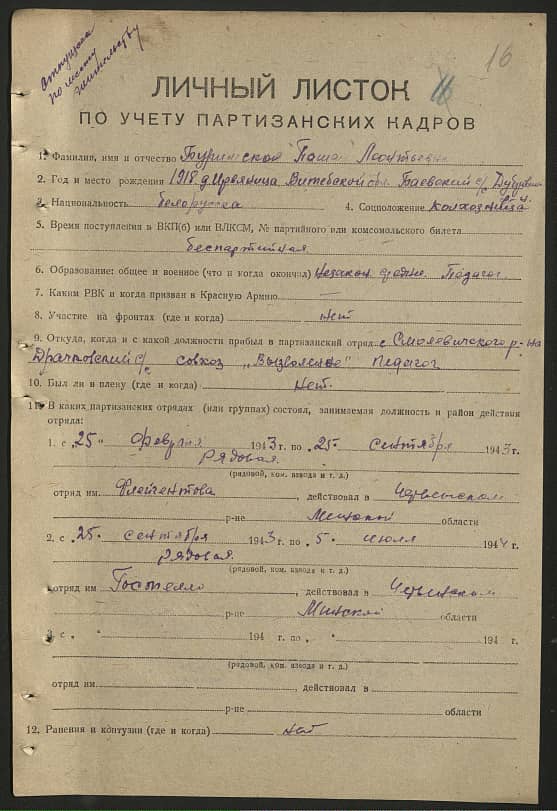 Отпущена
по месту
жительству
16
ЛИЧНЫЙ ЛИСТОК
ПО УЧЕТУ ПАРТИЗАНСКИХ КАДРОВ
1. Фамилия, имя и отчество Паша
2. Год и место рождения 1918 д. Витебской обл.
3. Национальность белорусска 4. Соцположение
5. Время поступления в ВКП(б) или ВЛКСМ, № партийного или комсомольского билета
беспартийная
6. Образование: общее и военное (что и когда окончил) Незакон. средне. Педагог.
7. Каким РВК и когда призван в Красную Армию —
8. Участие на фронтах (где и когда) нет
9. Откуда, когда и с какой должности прибыл в партизанский отряд с Смолевичского р-на
Драчковский с/с совхоз педагог
10. Был ли в плену (где и когда) Нет.
11. В каких партизанских отрядах (или группах) состоял, занимаемая должность и район действия
отряда:
1. с „25" февраля 1943 г. по „25" сентября 1943 г.
рядовая
(рядовой, ком. взвода и т. д.)
отряд им. , действовал в Червенском
р-не Минской области
2. с „25" сентября 1943 г. по „5" июля 1944 г.
рядовая
(рядовой, ком. взвода и т. д.)
отряд им Гостелло , действовал в Червенском
р-не Минской области
3. с „ " 194 г. по „ " 194 г.
(рядовой, ком. взвода и т. д.)
отряд им. , действовал в
р-не области
12. Ранения и контузии (где и когда) нет